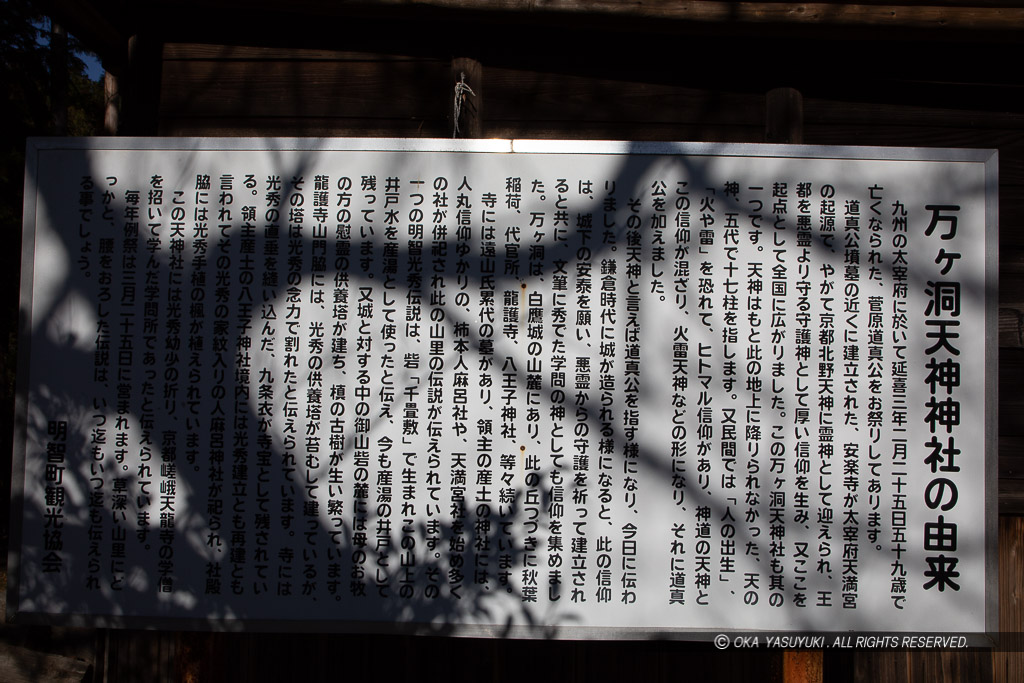 万ヶ洞天神神社の由来
九州の太宰府に於いて延喜三年二月二十五日五十九歳で
亡くなられた、菅原道真公をお祭りしてあります。
道真公墳墓の近くに建立された、安楽寺が太宰府天満宮
の起源で、やがて京都北野天神に霊神として迎えられ、王
都を悪霊より守る守護神として厚い信仰を生み、又ここを
起点として全国に広がりました。この万ヶ洞天神社も其の
一つです。天神はもと此の地上に降りられなかった、天の
神、五代で十七柱を指します。又民間では「人の出生」、
「火や雷」を恐れて、ヒトマル信仰があり、神道の天神と
この信仰が混ざり、火雷天神などの形になり、それに道真
公を加えました。
その後天神と言えば道真公を指す様になり、今日に伝わ
りました。鎌倉時代に城が造られる様になると、此の信仰
は、城下の安泰を願い、悪霊からの守護を祈って建立され
ると共に、文筆に秀でた学問の神としても信仰を集めまし
た。万ヶ洞は、白鷹城の山麓にあり、此の丘つづきに秋葉
稲荷、代官所、龍護寺、八王子神社、等々続いています。
寺には遠山氏累代の墓があり、領主の産土の神社には、
人丸信仰ゆかりの、柿本人麻呂社や、天満宮社を始め多く
の社が併祀され此の山里の伝説が伝えられています。その
一つの明智光秀伝説は、砦「千畳敷」で生まれこの山上の
井戸水を産湯として使ったと伝え、今も産湯の井戸として
残っています。又城と対する中の御山砦の麓には母のお牧
の方の慰霊の供養塔が建ち、槙の古樹が生い繁っています。
龍護寺山門脇には、光秀の供養塔が苔むして建っているが、
その塔は光秀の念力で割れたと伝えられています。寺には
光秀の直垂を縫い込んだ、九条衣が寺宝として残されてい
る。領主産土の八王子神社境内には光秀建立とも再建とも
言われてその光秀の家紋入りの人麻呂神社が祀られ、社殿
脇には光秀手植の楓が植えられています。
この天神社には光秀幼少の折り、京都嵯峨天龍寺の学僧
を招いて学んだ学問所であったと伝えられています。
毎年例祭は三月二十五日に営まれます。草深い山里にど
っかと、腰をおろした伝説は、いつ迄もいつ迄も伝えられ
る事でしょう。
明智町観光協会
© OKA YASUYUKI. ALL RIGHTS RESERVED.